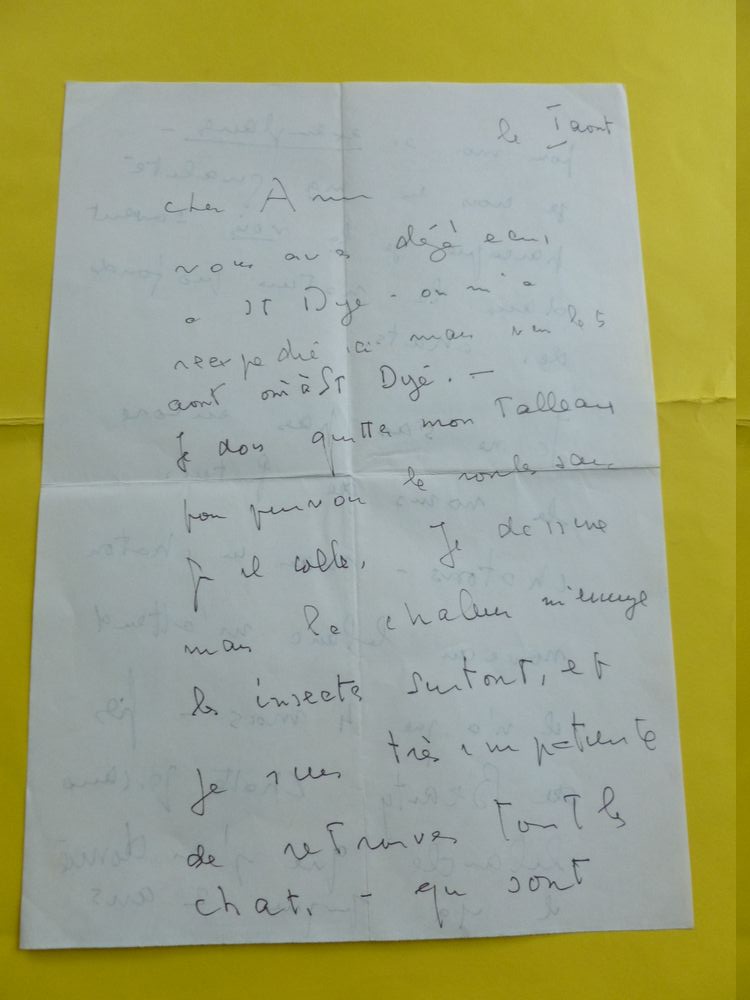 le 1 aout
cher Ami
vous avez déjà ecrit
a St Dyé - on m'a
reexpedié ici mais le 5
aout à St Dyé. -
Je dois quitter mon Tableau
pour pouvoir le rouler sans
qu'il colle. Je dessine
mais la chaleur m'ennuye
les insects surtout, et
Je suis très impatiente
de retrouver tout les
chats. - qui sont